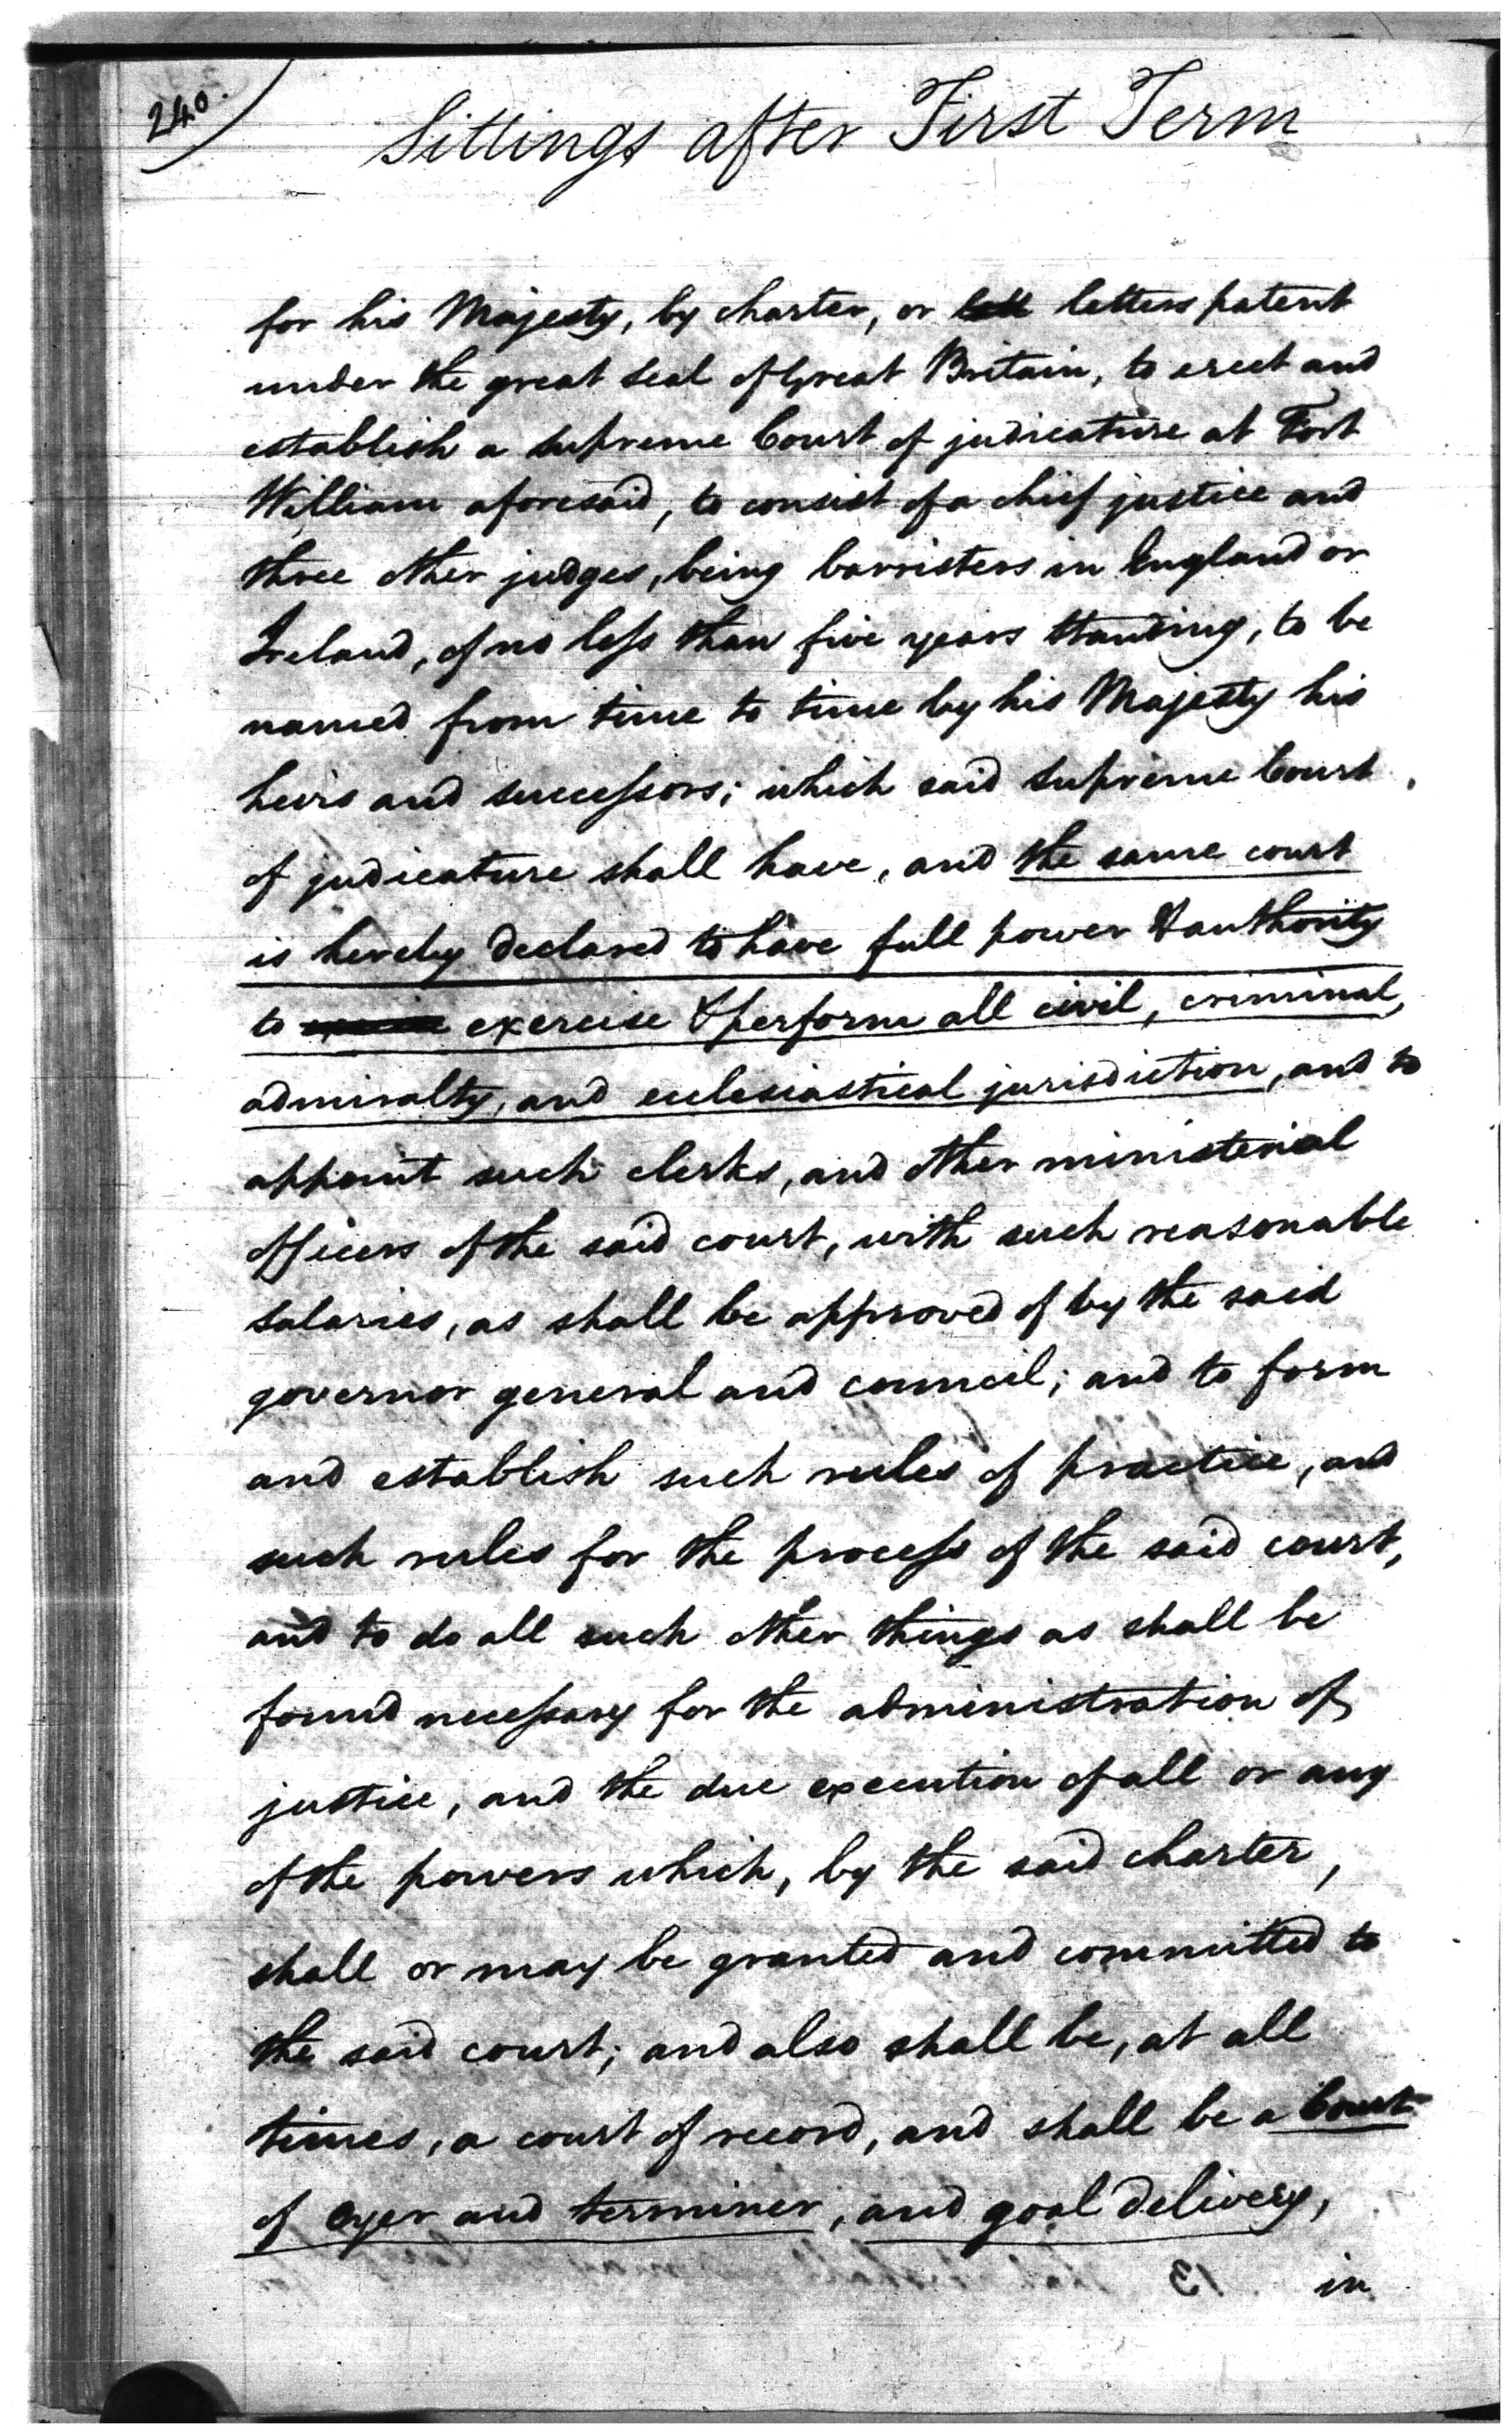 240.
Sittings after First Term
for his Majesty, by charter, or letters patent
under the great seal of Great Britain, to erect and
establish a supreme Court of judicature at Fort
William aforesaid, to consist of a chief justice and
three other judges, being barristers in England or
Ireland, of no less than five years standing, to be
named from time to time by his Majesty his
heirs and successors; which said supreme Court
of judicature shall have, and the same court
is hereby declared to have full power & authority
to exercise & perform all civil, criminal,
admiralty, and ecclesiastical jurisdiction, and to
appoint such clerks, and other ministerial
officers of the said court, with such reasonable
salaries, as shall be approved of by the said
governor general and council; and to form
and establish such rules of practice, and
such rules for the process of the said court,
and to do all such other things as shall be
found necessary for the administration of
justice, and the due execution of all or any
of the powers which, by the said charter,
shall or may be granted and committed to
the said court; and also shall be, at all
times, a court of record, and shall be a Court
of oyer and terminer, and goal delivery,
in